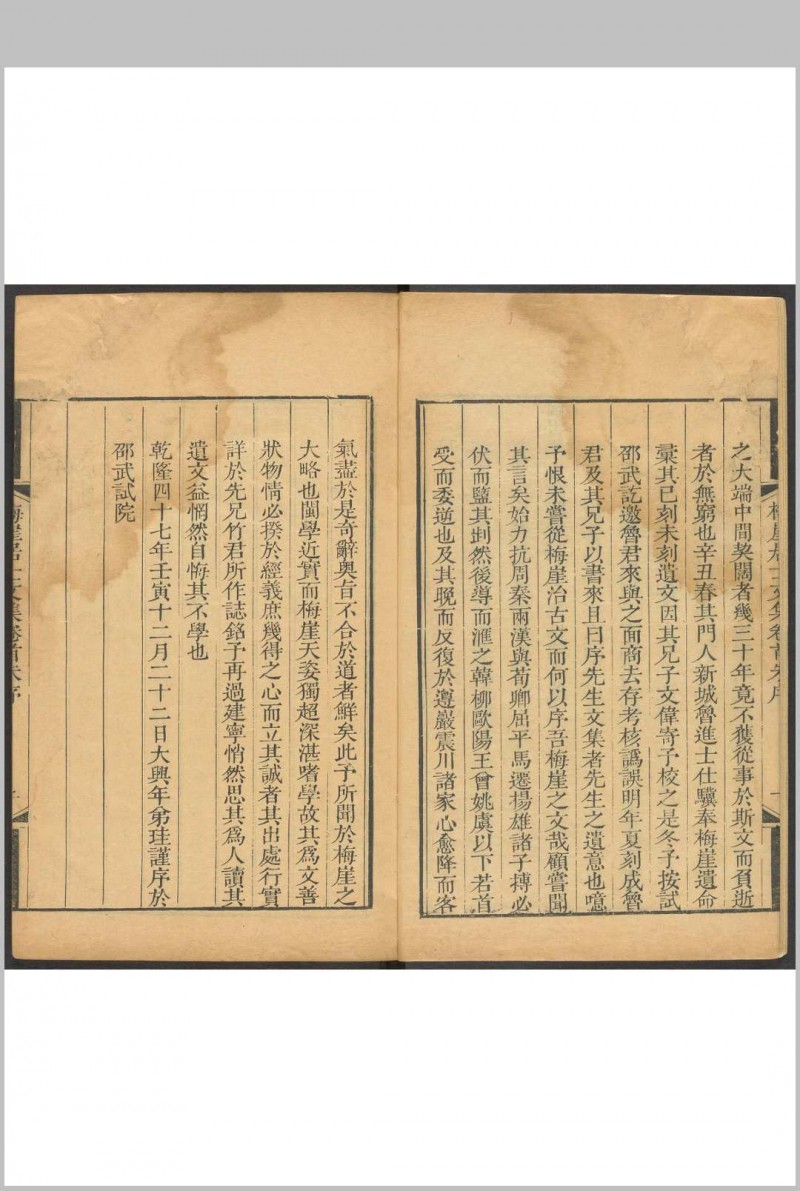 梅崖居士文集卷首朱序
之大端中間契闊者幾三十年竟不獲從事於斯文而負逝
者於無窮也辛丑春其門人新城魯進士仕驥奉梅崖遺命
稾其已刻未刻遺文因其兄子文偉寄予校之是冬予按試
邵武訖邀魯君來與之面商去存考核譌誤明年夏刻成魯
君及其兄子以書來且曰序先生文集者先生之遺意也噫
予恨未嘗從梅崖治古文而何以序吾梅崖之文哉顧嘗聞
其言矣始力抗周秦兩漢與荀卿屈平馬遷楊雄諸子摶必
伏而盬其𡉏然後導而滙之韓柳歐陽王曾姚虞以下若首
受而委逆也及其晚而反復於遵巖震川諸家心愈降而客
氣盡於是奇辭奧旨不合於道者鮮矣此予所聞於梅崖之
大略也閩學近實而梅崖天姿獨超深湛嗜學故其爲文善
狀物情必揆於經義庶幾得之心而立其誠者其出處行實
詳於先兄竹君所作誌銘予再過建寧悄然思其爲人讀其
遺文益惘然自悔其不學也
乾隆四十七年壬寅十二月二十二日大興年弟珪謹序於
邵武試院
梅崖居士文集卷首朱序